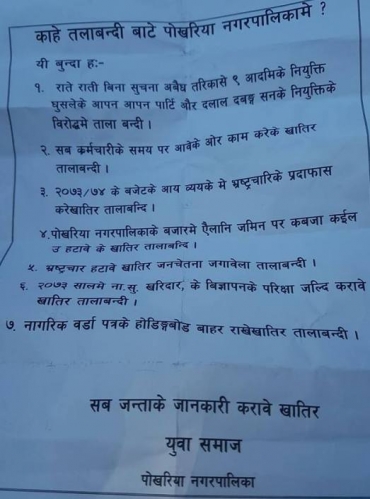 काहे तलाबन्दी बाटे पोखरिया नगरपालिकामे ?
यी बुन्दा हः-
१. राते राती बिना सुचना अबैध तरिकासे ९ आदमिके नियुक्ति
घुसलेके आपन आपन पार्टि और दलाल दबङ्ग सनके नियुक्तिके
बिरोद्धमे ताला बन्दी ।
२. सब कर्मचारीके समय पर आवेके ओर काम करेके खातिर
तालाबन्दी ।
३. २०७३/७४ के बजेटके आय ब्ययके मे भ्रष्ट्रचारिके प्रदाफास
करेखातिर तालाबन्दि ।
४.पोखरिया नगरपालिकाके बजारमे ऐलानि जमिन पर कबजा कईल
उ हटावे के खातिर तालाबन्दि ।
५. भ्रष्ट्रचार हटावे खातिर जनचेतना जगावेला तालाबन्दी ।
६. २०७३ सालमे ना.सु. खरिदार, के बिज्ञापनके परिक्षा जल्दि करावे
खातिर तालाबन्दी ।
७. नागरिक वर्डा पत्रके होडिङ्गबोड बाहर राखेखातिर तालाबन्दी ।
सब जन्ताके जानकारी करावे खातिर
युवा समाज
पोखरिया नगरपालिका